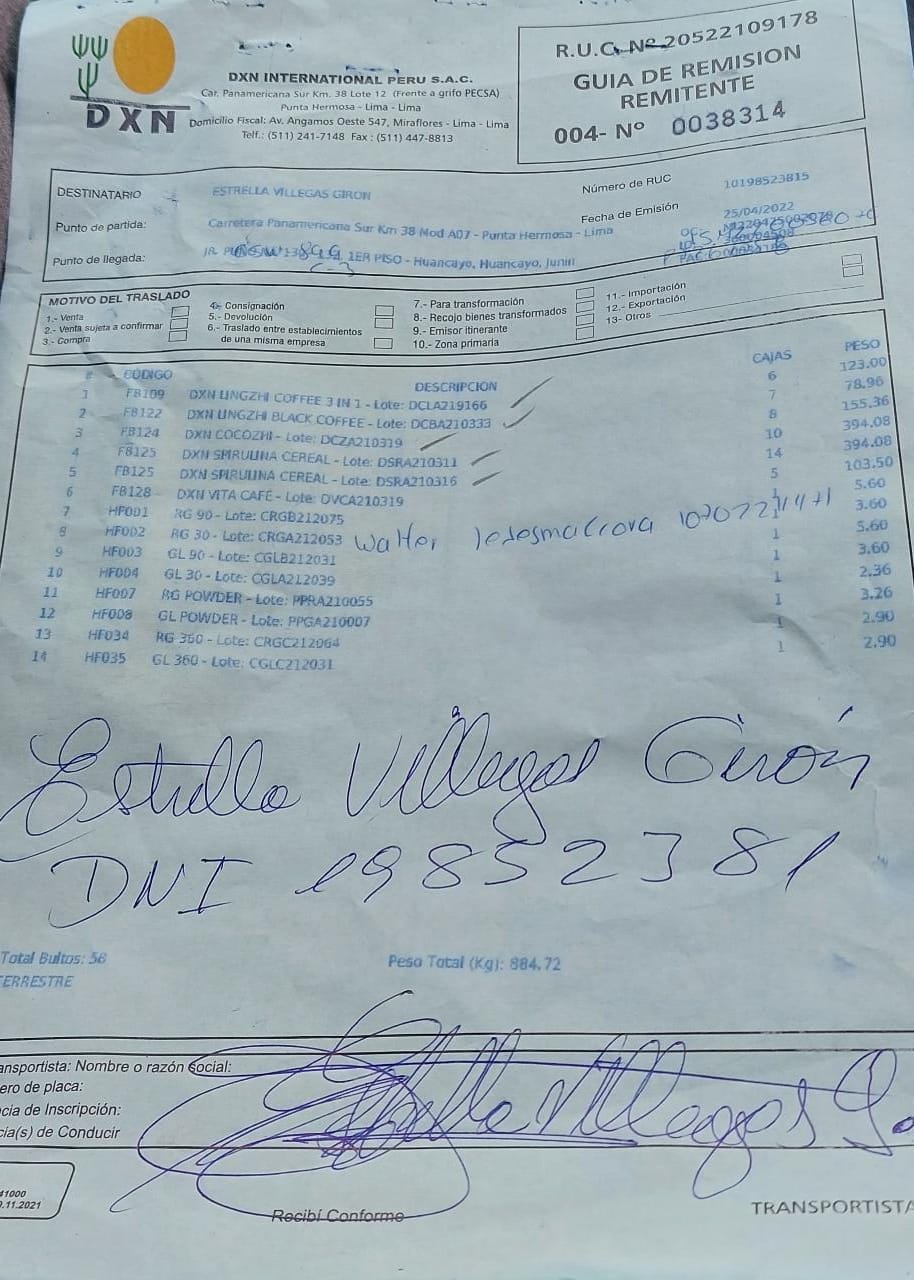 DXN
DXN INTERNATIONAL PERU S.A.C.
Car. Panamericana Sur Km. 38 Lote 12 (Frente a grifo PECSA)
Punta Hermosa - Lima - Lima
Domicilio Fiscal: Av. Angamos Oeste 547, Miraflores - Lima - Lima
Telf.: (511) 241-7148 Fax : (511) 447-8813
R.U.C. Nº 20522109178
GUIA DE REMISION
REMITENTE
004- Nº 0038314
DESTINATARIO ESTRELLA VILLEGAS GIRON Número de RUC 10198523815
Punto de partida: Carretera Panamericana Sur Km 38 Mod A07 - Punta Hermosa - Lima Fecha de Emisión 25/04/2022
Punto de llegada: JR. 1ER PISO - Huancayo, Huancayo, Junin
MOTIVO DEL TRASLADO
1.- Venta
2.- Venta sujeta a confirmar
3.- Compra
4.- Consignación
5.- Devolución
6.- Traslado entre establecimientos
de una misma empresa
7.- Para transformación
8.- Recojo bienes transformados
9.- Emisor itinerante
10.- Zona primaria
11.- Importación
12.- Exportación
13- Otros
# CODIGO DESCRIPCION CAJAS PESO
1 FB109 DXN LINGZHI COFFEE 3 IN 1 - Lote: DCLA219166 6 123.00
2 FB122 DXN LINGZHI BLACK COFFEE - Lote: DCBA210333 7 78.96
3 FB124 DXN COCOZHI - Lote: DCZA210319 8 155.36
4 FB125 DXN SPIRULINA CEREAL - Lote: DSRA210311 10 394.08
5 FB125 DXN SPIRULINA CEREAL - Lote: DSRA210316 14 394.08
6 FB128 DXN VITA CAFE - Lote: DVCA210319 5 103.50
7 HF001 RG 90 - Lote: CRGB212075 1 5.60
8 HF002 RG 30 - Lote: CRGA212053 1 3.60
Walter
9 HF003 GL 90 - Lote: CGLB212031 1 5.60
10 HF004 GL 30 - Lote: CGLA212039 1 3.60
11 HF007 RG POWDER - Lote: PPRA210055 1 2.36
12 HF008 GL POWDER - Lote: PPGA210007 1 3.26
13 HF034 RG 360 - Lote: CRGC212064 1 2.90
14 HF035 GL 360 - Lote: CGLC212031 1 2.90
Estrella Villegas Girón
DNI 19852381
Total Bultos: 56 Peso Total (Kg): 884.72
TERRESTRE
ansportista: Nombre o razón social:
ero de placa:
cia de Inscripción:
cia(s) de Conducir
Estrella Villegas G.
41000
.11.2021
Recibí Conforme
TRANSPORTISTA